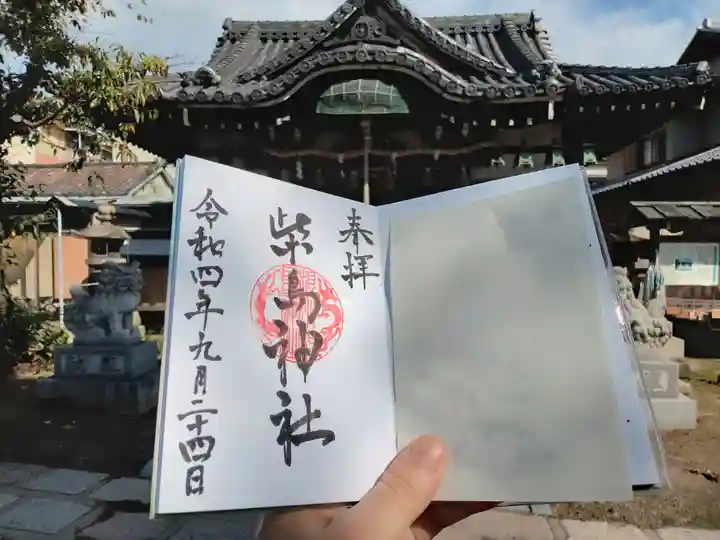 奉拝
柴島神社
令和四年九月二十四日